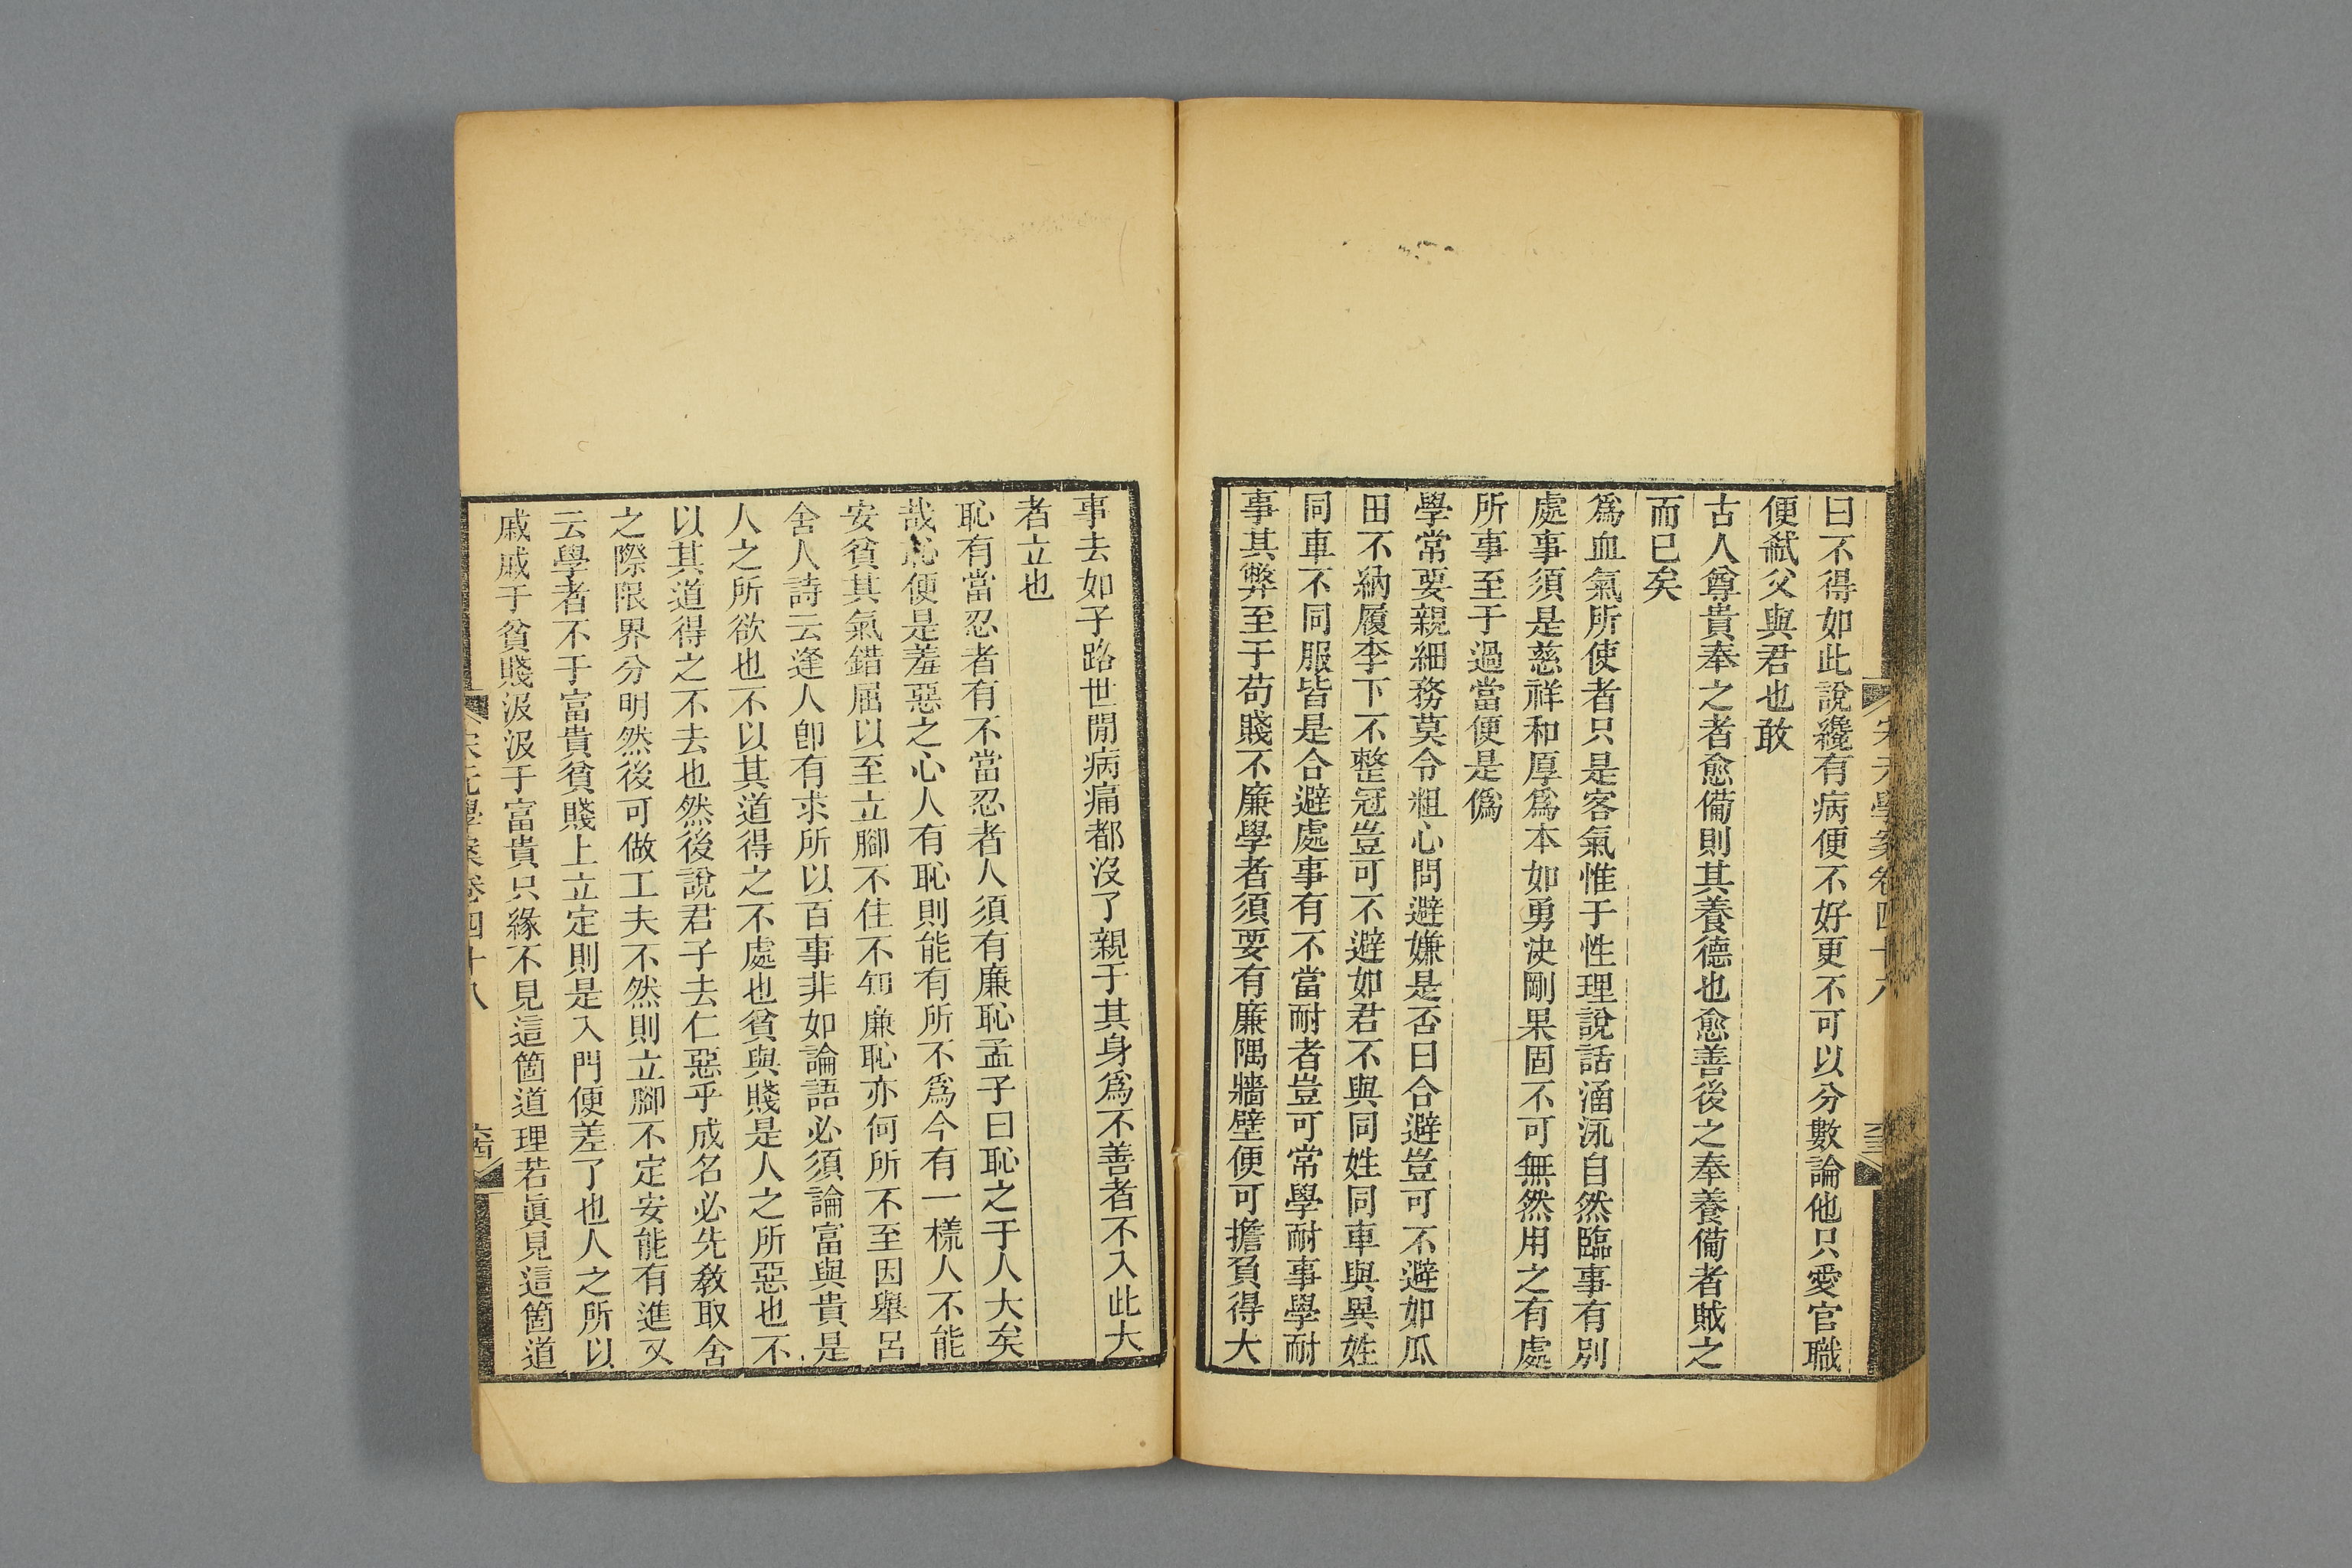 曰不得如此說纔有病便不好更不可以分數論他只愛官職
便弒父與君也敢
古人尊貴奉之者愈備則其養德也愈善後之奉養備者賊之
而已矣
爲血氣所使者只是客氣惟于性理說話涵泳自然臨事有別
處事須是慈祥和厚爲本如勇決剛果固不可無然用之有處
所事至于過當便是僞
學常要親細務莫令粗心問避嫌是否曰合避豈可不避如瓜
田不納履李下不整冠豈可不避如君不與同姓同車與異姓
同車不同服皆是合避處事有不當耐者豈可常學耐事學耐
事其弊至于苟賤不廉學者須要有廉隅牆壁便可擔負得大
事去如子路世閒病痛都沒了親于其身爲不善者不入此大
者立也
恥有當忍者有不當忍者人須有廉恥孟子曰恥之于人大矣
哉恥便是羞惡之心人有恥則能有所不爲今有一樣人不能
安貧其氣錯屈以至立腳不住不知廉恥亦何所不至因舉呂
舍人詩云逢人卽有求所以百事非如論語必須論富與貴是
人之所欲也不以其道得之不處也貧與賤是人之所惡也不
以其道得之不去也然後說君子去仁惡乎成名必先敎取舍
之際限界分明然後可做工夫不然則立腳不定安能有進又
云學者不于富貴貧賤上立定則是入門便差了也人之所以
戚戚于貧賤汲汲于富貴只緣不見這箇道理若眞見這箇道